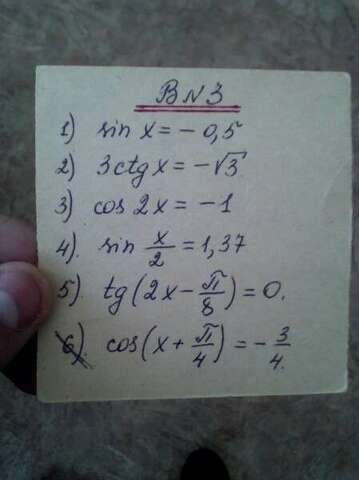 В N 3
1) sin x = - 0,5
2) 3ctg x = -√3
3) cos 2x = -1
4). sin x/2 = 1,37
5). tg(2x - π/8) = 0.
6). cos(x + π/4) = - 3/4.